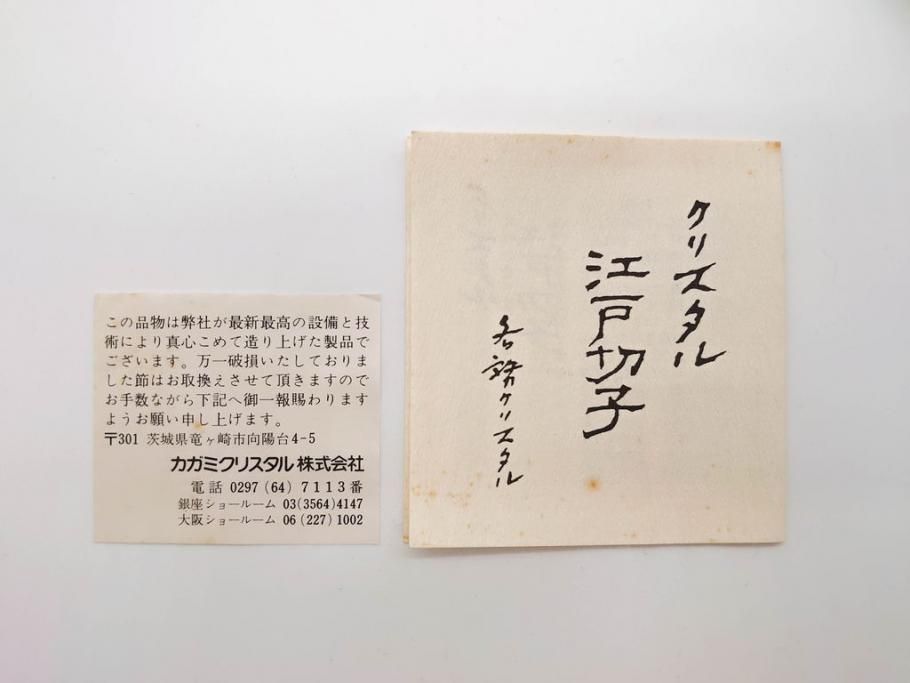 この品物は弊社が最新最高の設備と技
術により真心こめて造り上げた製品で
ございます。万一破損いたしておりま
した節はお取換えさせて頂きますので
お手数ながら下記へ御一報賜わります
ようお願い申し上げます。
〒301 茨城県竜ヶ崎市向陽台4-5
カガミクリスタル株式会社
電話 0297(64)7113番
銀座ショールーム 03(3564)4147
大阪ショールーム 06(227)1002
クリスタル
江戸切子
各務クリスタル